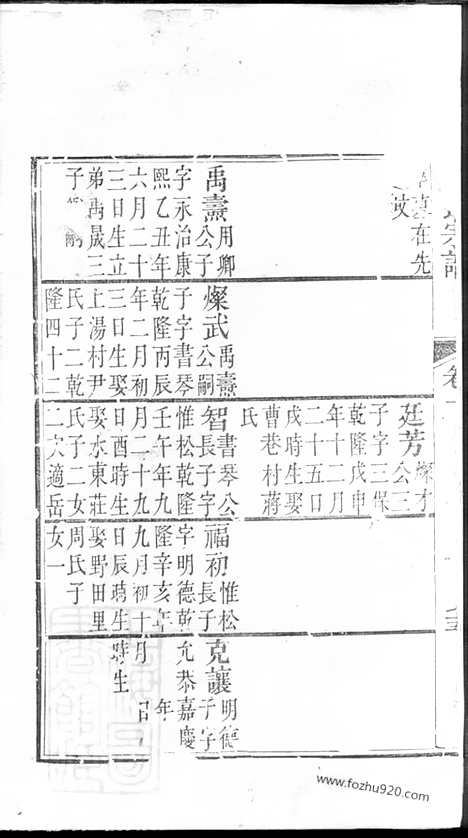 宗譜
卷
在先
禹壽用卿公子
字永治康
熙乙丑年
六月二十
三日生立
弟禹晟三
子
燦武禹壽公嗣
子字書琴
乾隆丙辰
年二月初
三日生娶
上湯村尹
氏子二乾
隆四十二
廷芳燦才公三
子字三保
乾隆戊申
年十二月
二十五日
戌時生娶
曹巷村蔣
氏
智書琴公長子字
惟松乾隆
壬午年九
月二十九
日酉時生
娶水東莊
氏子二女
二大適岳
福初惟松長子
字明德乾
隆辛亥年
九月初十
日辰時生
娶野田里
周氏子
女一
克讓明德子字
允恭嘉慶
年
月 日
時生
www.fozhu920.com